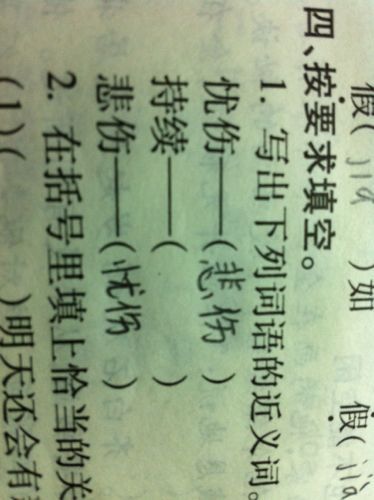 假( jiǎ )如 假( jià
四、按要求填空。
1. 写出下列词语的近义词。
忧伤——(悲伤 )
持续——( )
悲伤——(忧伤 )
2. 在括号里填上恰当的关
(1)( )明天还会有